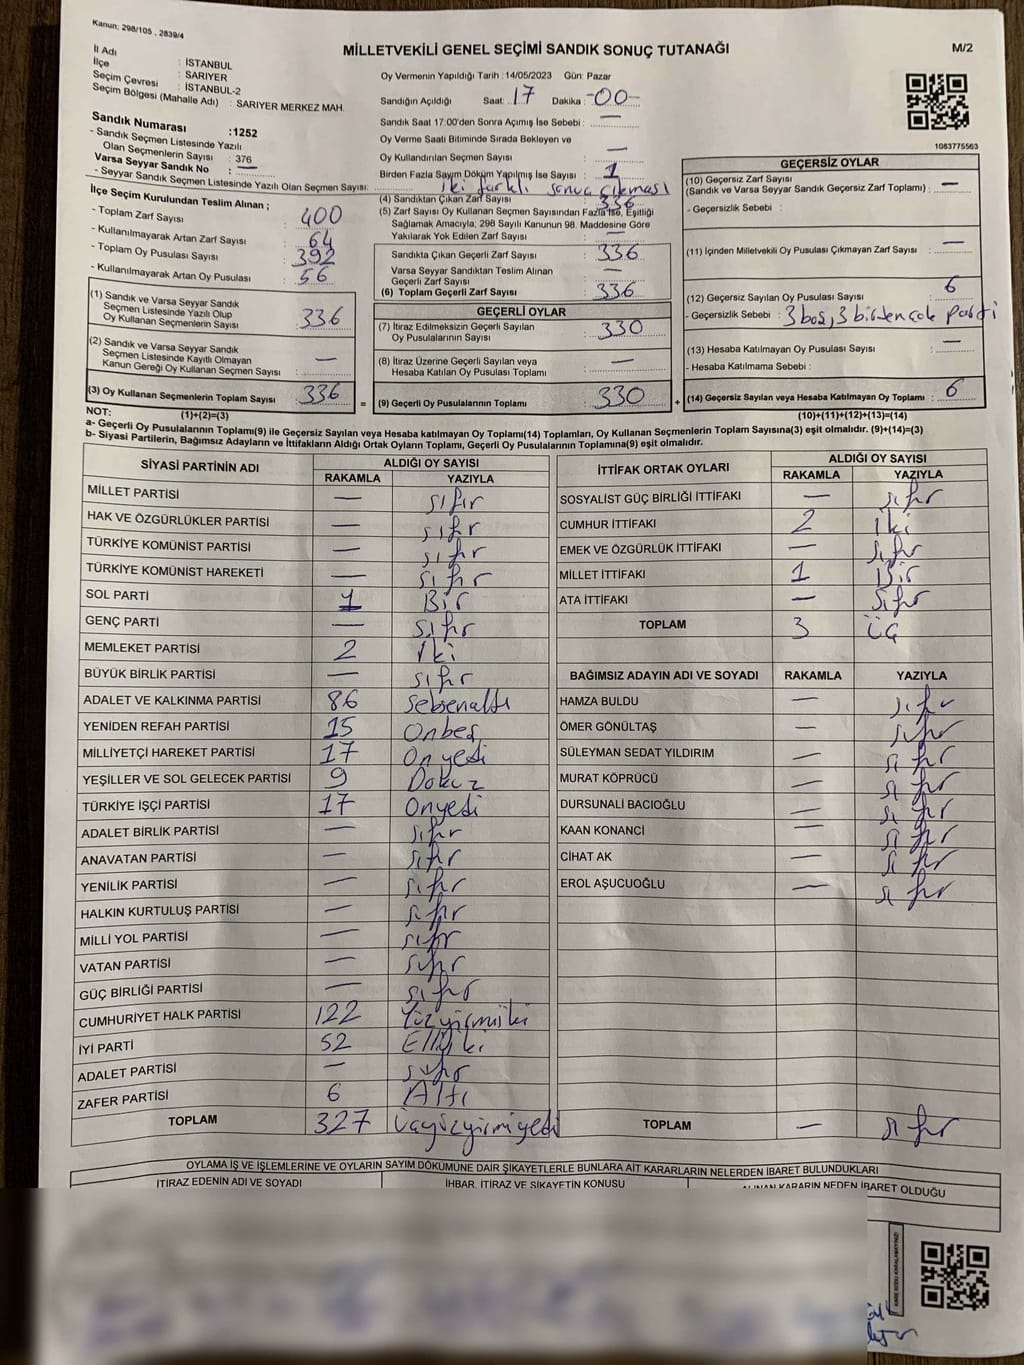 Kanun: 298/105 , 2839/4
MİLLETVEKİLİ GENEL SEÇİMİ SANDIK SONUÇ TUTANAĞI
M/2
İl Adı : İSTANBUL
İlçe : SARIYER
Seçim Çevresi : İSTANBUL-2
Seçim Bölgesi (Mahalle Adı) : SARIYER MERKEZ MAH.
Sandık Numarası :1252
- Sandık Seçmen Listesinde Yazılı
Olan Seçmenlerin Sayısı : 376
Varsa Seyyar Sandık No : —
- Seyyar Sandık Seçmen Listesinde Yazılı Olan Seçmen Sayısı:
İlçe Seçim Kurulundan Teslim Alınan ;
- Toplam Zarf Sayısı 400
- Kullanılmayarak Artan Zarf Sayısı 64
- Toplam Oy Pusulası Sayısı 392
- Kullanılmayarak Artan Oy Pusulası 56
(1) Sandık ve Varsa Seyyar Sandık
Seçmen Listesinde Yazılı Olup
Oy Kullanan Seçmenlerin Sayısı : 336
(2) Sandık ve Varsa Seyyar Sandık
Seçmen Listesinde Kayıtlı Olmayan
Kanun Gereği Oy Kullanan Seçmen Sayısı : —
(3) Oy Kullanan Seçmenlerin Toplam Sayısı : 336
Oy Vermenin Yapıldığı Tarih : 14/05/2023 Gün: Pazar
Sandığın Açıldığı Saat: 17 Dakika -00-
Sandık Saat 17:00'den Sonra Açımış İse Sebebi : —
Oy Verme Saati Bitiminde Sırada Bekleyen ve
Oy Kullandırılan Seçmen Sayısı —
Birden Fazla Sayım Döküm Yapılmış İse Sayısı : 1
iki farklı sonuç çıkması
(4) Sandıktan Çıkan Zarf Sayısı 336
(5) Zarf Sayısı Oy Kullanan Seçmen Sayısından Fazla İse, Eşitliği
Sağlamak Amacıyla, 298 Sayılı Kanunun 98. Maddesine Göre
Yakılarak Yok Edilen Zarf Sayısı —
Sandıkta Çıkan Geçerli Zarf Sayısı : 336
Varsa Seyyar Sandıktan Teslim Alınan
Geçerli Zarf Sayısı : —
(6) Toplam Geçerli Zarf Sayısı : 336
GEÇERLİ OYLAR
(7) İtiraz Edilmeksizin Geçerli Sayılan
Oy Pusulasının Sayısı : 330
(8) İtiraz Üzerine Geçerli Sayılan veya
Hesaba Katılan Oy Pusulası Toplamı : —
= (9) Geçerli Oy Pusulalarının Toplamı : 330
1083775563
GEÇERSİZ OYLAR
(10) Geçersiz Zarf Sayısı
(Sandık ve Varsa Seyyar Sandık Geçersiz Zarf Toplamı) : —
- Geçersizlik Sebebi :
(11) İçinden Milletvekili Oy Pusulası Çıkmayan Zarf Sayısı : —
(12) Geçersiz Sayılan Oy Pusulası Sayısı : 6
- Geçersizlik Sebebi : 3 boş, 3 birden çok parti
(13) Hesaba Katılmayan Oy Pusulası Sayısı : —
- Hesaba Katılmama Sebebi :
+ (14) Geçersiz Sayılan veya Hesaba Katılmayan Oy Toplamı : 6
NOT: (1)+(2)=(3) (10)+(11)+(12)+(13)=(14)
a- Geçerli Oy Pusulalarının Toplamı(9) ile Geçersiz Sayılan veya Hesaba katılmayan Oy Toplamı(14) Toplamları, Oy Kullanan Seçmenlerin Toplam Sayısına(3) eşit olmalıdır. (9)+(14)=(3)
b- Siyasi Partilerin, Bağımsız Adayların ve İttifakların Aldığı Ortak Oyların Toplamı, Geçerli Oy Pusulalarının Toplamına(9) eşit olmalıdır.
SİYASİ PARTİNİN ADI ALDIĞI OY SAYISI
RAKAMLA YAZIYLA
MİLLET PARTİSİ — sıfır
HAK VE ÖZGÜRLÜKLER PARTİSİ — sıfır
TÜRKİYE KOMÜNİST PARTİSİ — sıfır
TÜRKİYE KOMÜNİST HAREKETİ — sıfır
SOL PARTİ 1 Bir
GENÇ PARTİ — sıfır
MEMLEKET PARTİSİ 2 iki
BÜYÜK BİRLİK PARTİSİ — sıfır
ADALET VE KALKINMA PARTİSİ 86 seksenaltı
YENİDEN REFAH PARTİSİ 15 Onbeş
MİLLİYETÇİ HAREKET PARTİSİ 17 Onyedi
YEŞİLLER VE SOL GELECEK PARTİSİ 9 Dokuz
TÜRKİYE İŞÇİ PARTİSİ 17 Onyedi
ADALET BİRLİK PARTİSİ — sıfır
ANAVATAN PARTİSİ — sıfır
YENİLİK PARTİSİ — sıfır
HALKIN KURTULUŞ PARTİSİ — sıfır
MİLLİ YOL PARTİSİ — sıfır
VATAN PARTİSİ — sıfır
GÜÇ BİRLİĞİ PARTİSİ — sıfır
CUMHURİYET HALK PARTİSİ 122 Yüzyirmiiki
İYİ PARTİ 52 Elliiki
ADALET PARTİSİ — sıfır
ZAFER PARTİSİ 6 Altı
TOPLAM 327 üçyüzyirmiyedi
İTTİFAK ORTAK OYLARI ALDIĞI OY SAYISI
RAKAMLA YAZIYLA
SOSYALİST GÜÇ BİRLİĞİ İTTİFAKI — sıfır
CUMHUR İTTİFAKI 2 iki
EMEK VE ÖZGÜRLÜK İTTİFAKI — sıfır
MİLLET İTTİFAKI 1 Bir
ATA İTTİFAKI — sıfır
TOPLAM 3 üç
BAĞIMSIZ ADAYIN ADI VE SOYADI RAKAMLA YAZIYLA
HAMZA BULDU — sıfır
ÖMER GÖNÜLTAŞ — sıfır
SÜLEYMAN SEDAT YILDIRIM — sıfır
MURAT KÖPRÜCÜ — sıfır
DURSUNALİ BACIOĞLU — sıfır
KAAN KONANCİ — sıfır
CİHAT AK — sıfır
EROL AŞUCUOĞLU — sıfır
TOPLAM — sıfır
OYLAMA İŞ VE İŞLEMLERİNE VE OYLARIN SAYIM DÖKÜMÜNE DAİR ŞİKAYETLERLE BUNLARA AİT KARARLARIN NELERDEN İBARET BULUNDUKLARI
İTİRAZ EDENİN ADI VE SOYADI İHBAR, İTİRAZ VE ŞİKAYETİN KONUSU ALINAN KARARIN NEDEN İBARET OLDUĞU